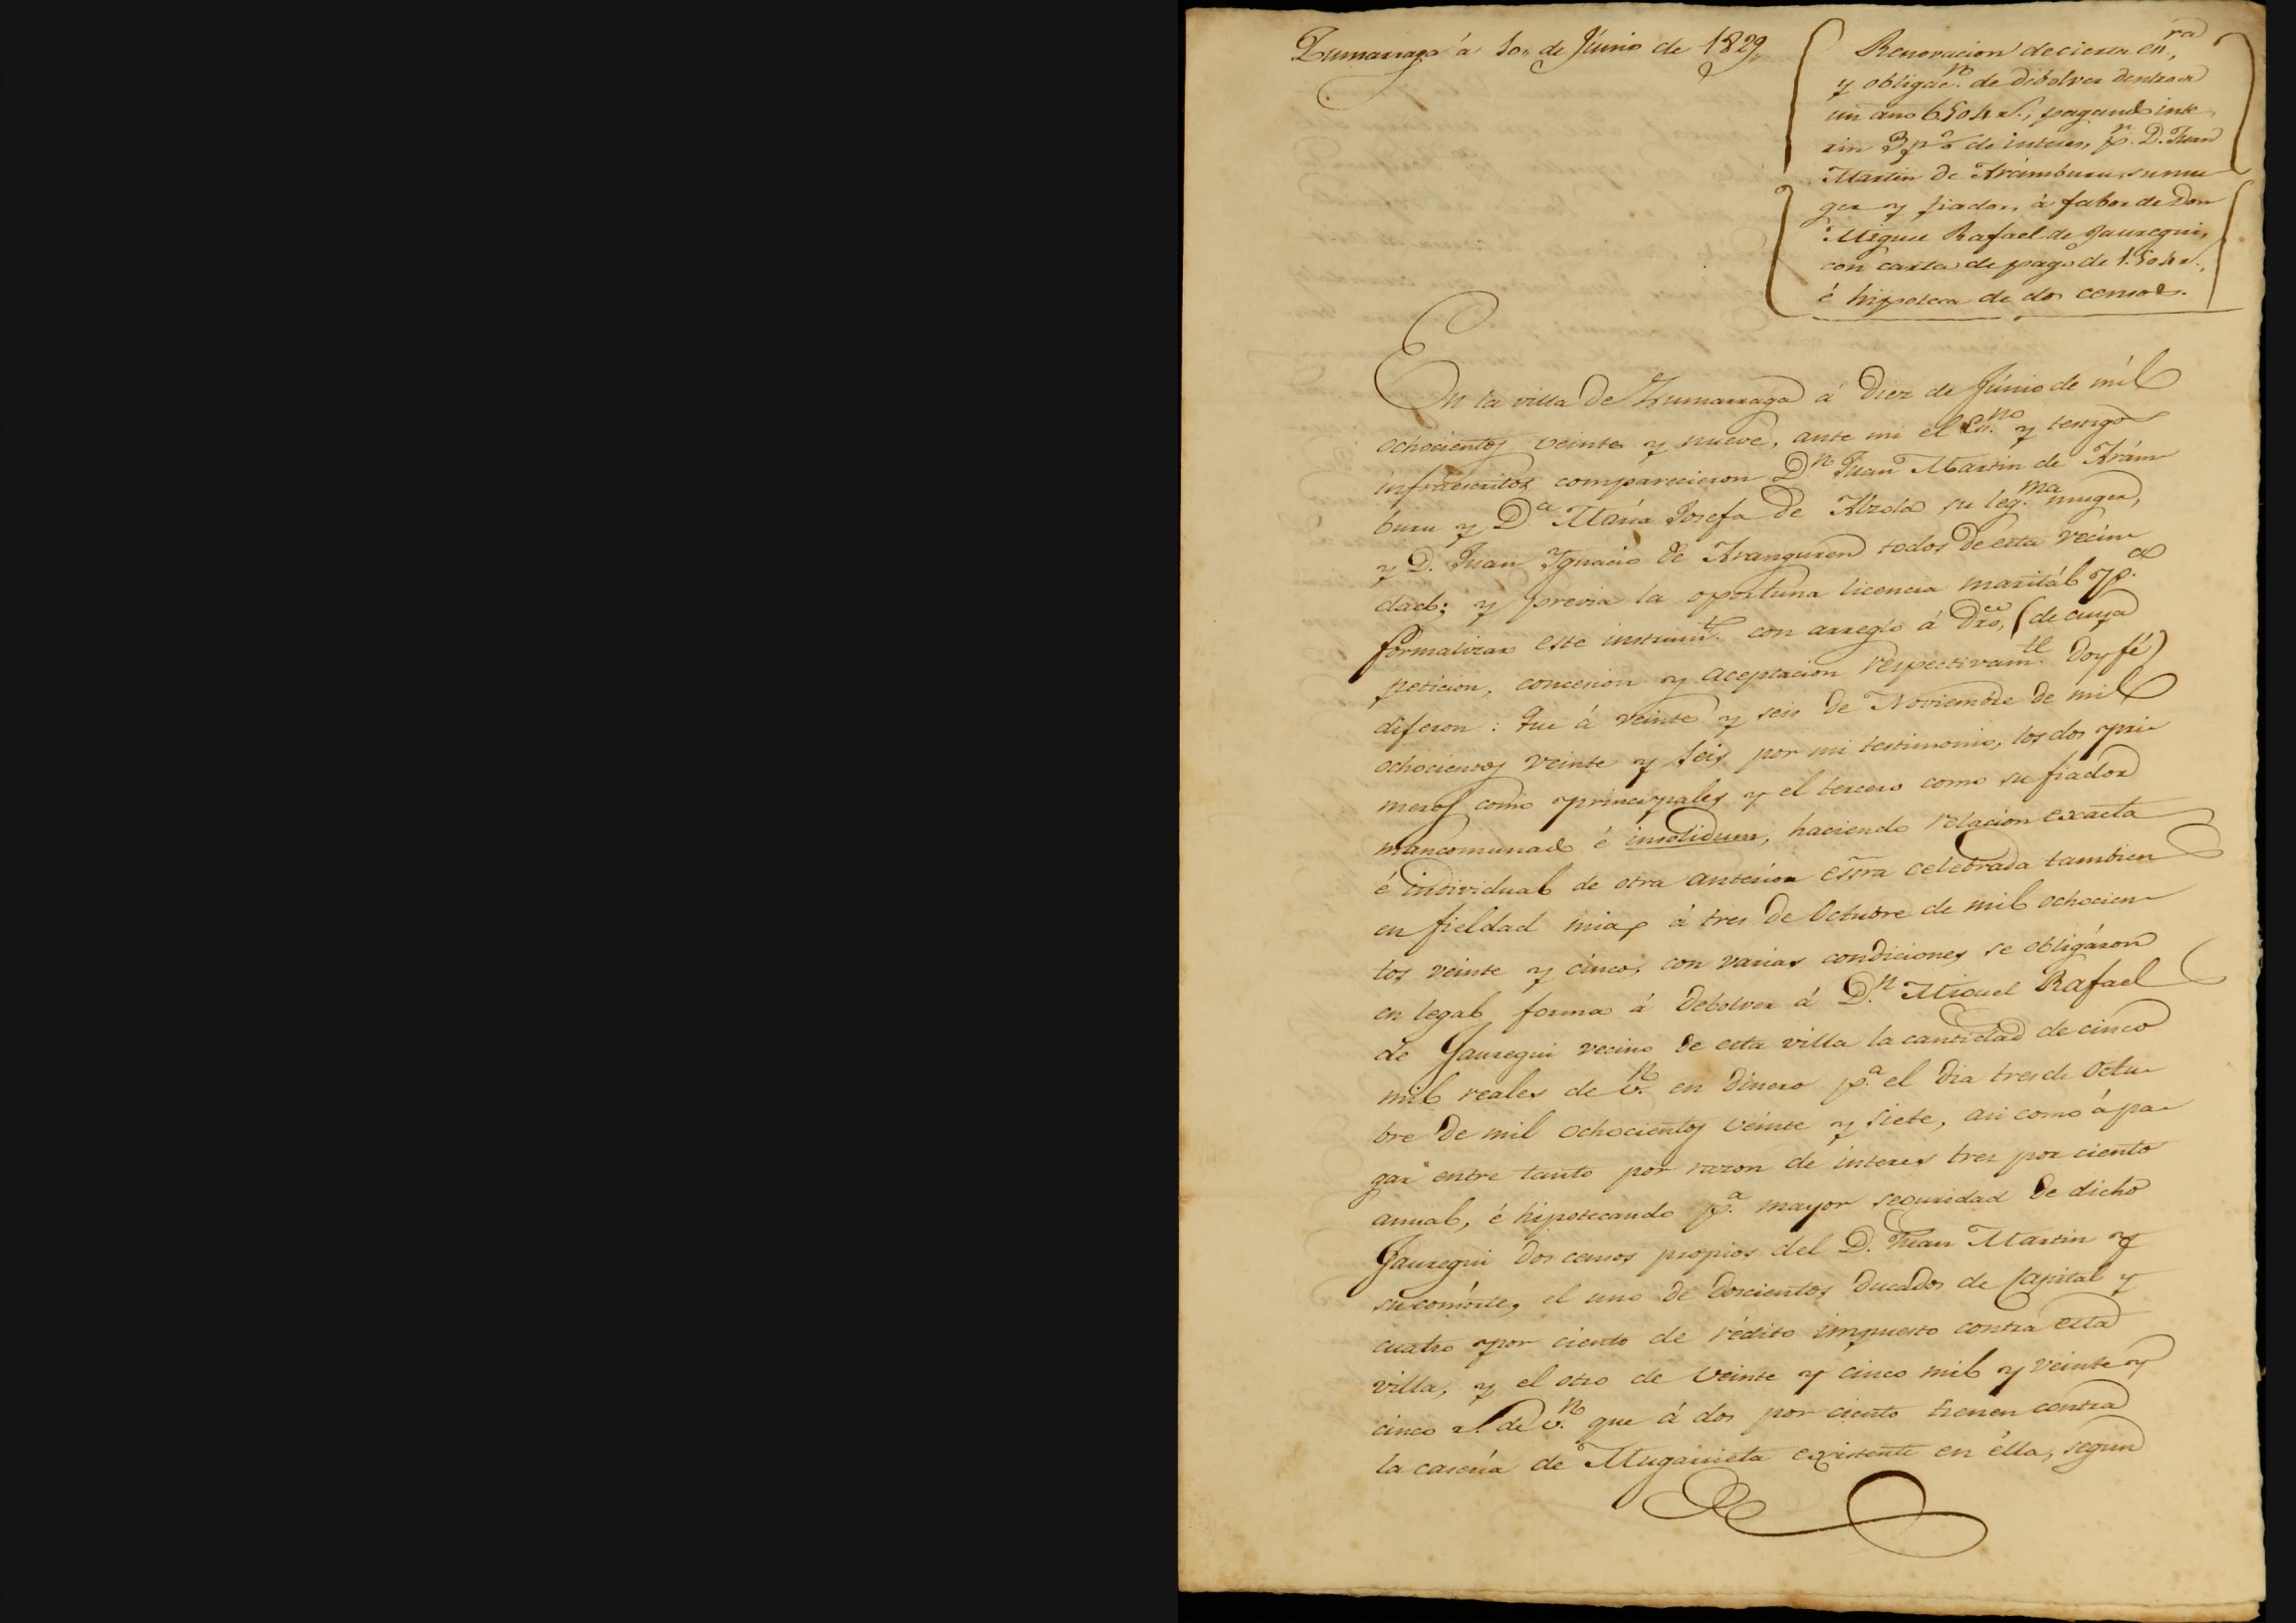 Zumarraga á 10,, de Júnio de 1829,
Renovacion de cierta esc.ra,
y obligac.n de debolver dentro de
un año 6504 rs., pagando inte-
rin 3 p% de interes, p.r D. Juan
Martin de Arámburu, su mu-
ger y fiador, á fabor de Don
Miguel Rafael de Jauregui,
con carta de pago de 1504 rs.,
é hipoteca de dos censos.
En la villa de Zumarraga á diez de Júnio de mil
ochocientos veinte y nueve, ante mi el Es.no y testigos
infraescritos comparecieron D.n Juan Martin de Arám-
buru y D.a María Josefa de Alzola su leg.ma muger,
y D. Juan Ygnacio de Aranguren todos de esta vecin-
dad; y previa la oportuna licencia maritál p.a
formalizar este instrum.to con arreglo á Dro, (de cuya
peticion, concesion y aceptacion respectivam.te doy fé)
diferon: Que á veinte y seis de Noviembre de mil
ochocientos veinte y seis por mi testimonio, los dos pri-
meros como principales y el tercero como su fiador
mancomunado é insolidum, haciendo relacion exacta
é individual de otra anterior essra celebrada tambien
en fieldad mia, á tres de Octubre de mil ochocien-
tos veinte y cinco, con varias condiciones se obligáron
en legal forma á debolver á D.n Miguel Rafael
de Jauregui vecino de esta villa la cantidad de cinco
mil reales de v.n en dinero p.a el dia tres de Octu-
bre de mil ochocientos veinte y siete, asi como á pa-
gar entre tanto por razon de interes tres por ciento
anual, é hipotecando p.a mayor seguridad de dicho
Jauregui dos censos propios del D. Juan Martin y
su consorte, el uno de doscientos ducados de Capital y
cuatro por ciento de rédito impuesto contra esta
villa, y el otro de veinte y cinco mil y veinte y
cinco rs. de v.n que á dos por ciento tienen contra
la casería de Mugarrieta existente en élla, segun